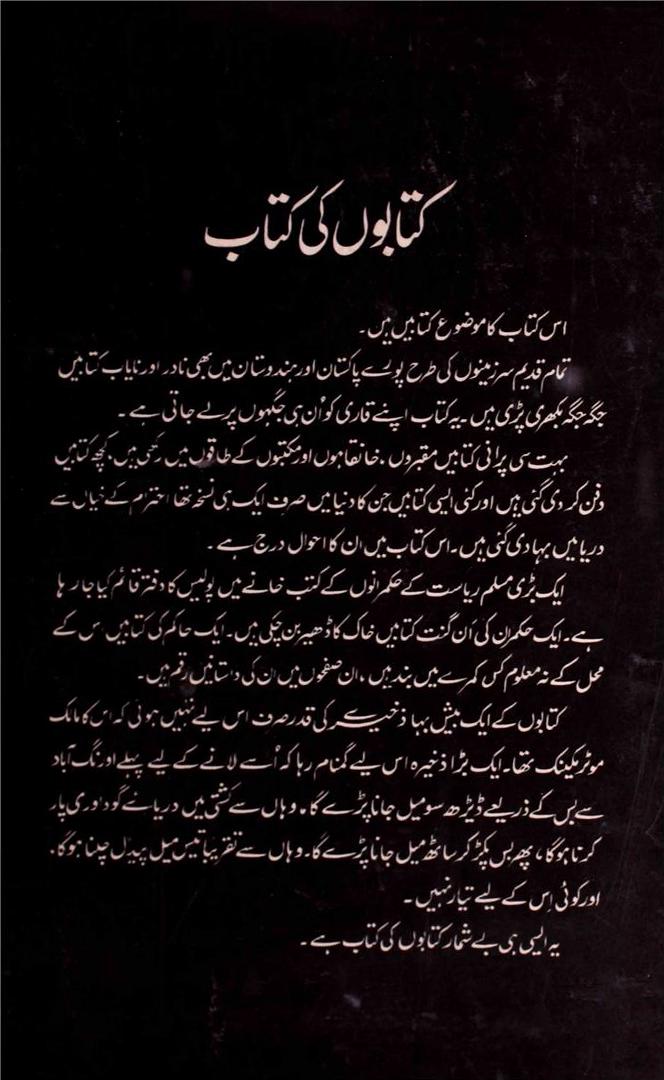 کتابوں کی کتاب
اس کتاب کا موضوع کتابیں ہیں۔
تمام قدیم سرزمینوں کی طرح پورے پاکستان اور ہندوستان میں بھی نادر اور نایاب کتابیں
جگہ جگہ بکھری پڑی ہیں۔ یہ کتاب اپنے قاری کو اُن ہی جگہوں پر لے جاتی ہے۔
بہت سی پرانی کتابیں مقبروں، خانقاہوں اور مکتبوں کے طاقوں میں رکھی ہیں، کچھ کتابیں
دفن کر دی گئی ہیں اور کئی ایسی کتابیں جن کا دنیا میں صرف ایک ہی نسخہ تھا احترام کے خیال سے
دریا میں بہا دی گئی ہیں۔ اس کتاب میں ان کا احوال درج ہے۔
ایک بڑی مسلم ریاست کے حکمرانوں کے کتب خانے میں پولیس کا دفتر قائم کیا جا رہا
ہے۔ ایک حکمران کی اَن گنت کتابیں خاک کا ڈھیر بن چکی ہیں۔ ایک حاکم کی کتابیں اس کے
محل کے نہ معلوم کس کمرے میں بند ہیں، ان صفحوں میں ان کی داستانیں رقم ہیں۔
کتابوں کے ایک بیش بہا ذخیرے کی قدر صرف اس لیے نہیں ہوئی کہ اس کا مالک
موٹر مکینک تھا۔ ایک بڑا ذخیرہ اس لیے گمنام رہا کہ اُسے لانے کے لیے پہلے اورنگ آباد
سے بس کے ذریعے ڈیڑھ سو میل جانا پڑے گا۔ وہاں سے کشتی میں دریائے گوداوری پار
کرنا ہوگا، پھر بس پکڑ کر ساٹھ میل جانا پڑے گا۔ وہاں سے تقریباً تیس میل پیدل چلنا ہوگا۔
اور کوئی اِس کے لیے تیار نہیں۔
یہ ایسی ہی بے شمار کتابوں کی کتاب ہے۔